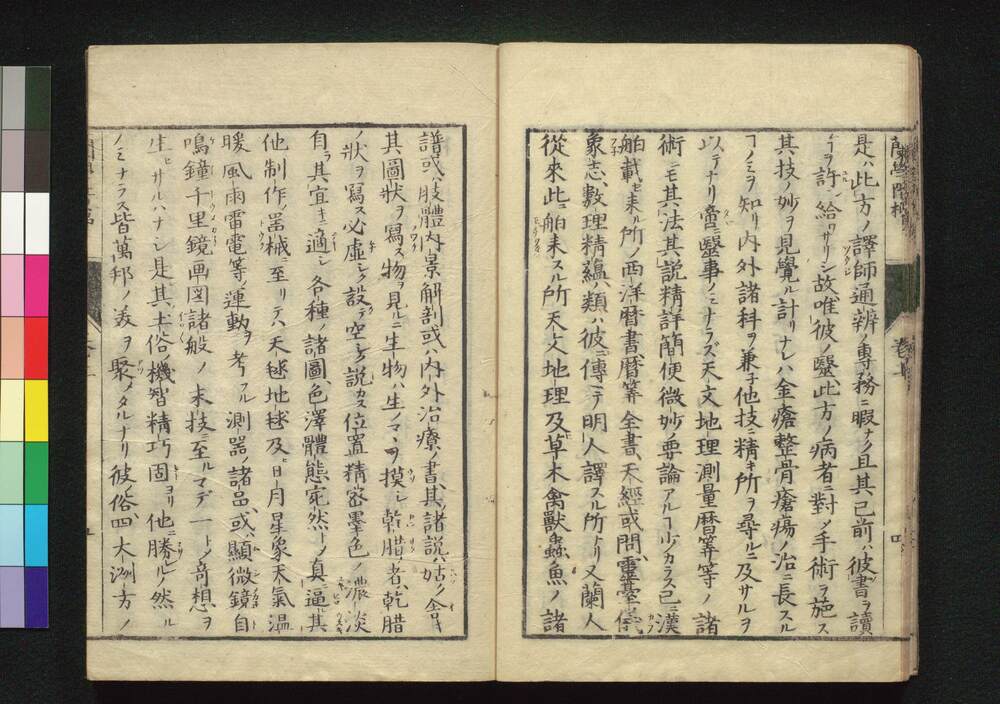 蘭學階梯
卷上
四
是ハ此方ノ譯師通辨ノ專務ニ暇ナク且其已前ハ彼書ヲ讀
ヿヲ許シ給ワサリシ故唯彼ノ毉此方ノ病者ニ對〆手術ヲ施ス
其技ノ妙ヲ見覺ル計リナレハ金瘡整骨瘡瘍ノ治ニ長スル
ヿノミヲ知リ内外諸科ヲ兼子他技ニ精キ所ヲ尋ルニ及サルヲ
以テナリ啻ニ毉事ノミナラズ天文地理測量暦筭等ノ諸
術ニモ其法其説精詳簡便微妙ノ要論アルヿ少カラス已ニ漢
舶載セ来ル所ノ西洋暦書暦筭全書天經或問靈臺儀
象志數理精蘊ノ類ハ彼ニ傳ヘテ明人譯スル所ナリ又蘭人
從来此ニ舶来スル所天文地理及ヒ草木禽獸蟲魚ノ諸
譜或ハ肢體内景解剖或ハ内外治療ノ書其諸説ハ姑ク舍キ
其圖狀ヲ寫ス物ヲ見ルニ生物ハ生ノマヽヲ摸シ乾腊者ハ乾腊
ノ狀ヲ寫ス必虚シク設テ空シク説カス位置精密墨色ノ濃淡
自ラ其宜キニ適シ各種ノ諸圖色澤體態宛然トノ真ニ逼ル其
他制作ノ噐械ニ至リテハ天毬地毬及ヒ日月星象天氣温
暖風雨雷電等ノ運動ヲ考フル測噐ノ諸品或ハ顯微鏡自
鳴鐘千里鏡画図諸般ノ末技ニ至ルマデ一トノ竒想ヲ
生セサルハナシ是其土俗ノ機智精巧固ヨリ他ニ勝レルノ然ル
ノミナラス皆萬邦ノ美ヲ聚メタルナリ彼俗四大洲ノ方ノ